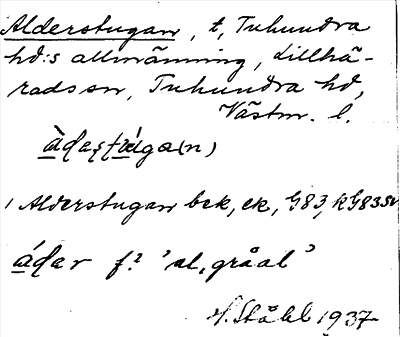 Alderstugan, t, Tuhundra
hd:s allmänning, Lillhä-
rads sn, Tuhundra hd,
Västm. l.
àdaʂtág̶a(n)
1 Alderstugan bek, ek, G83, RG83SV
ádar f? 'al, gråal'
H. Ståhl 1937